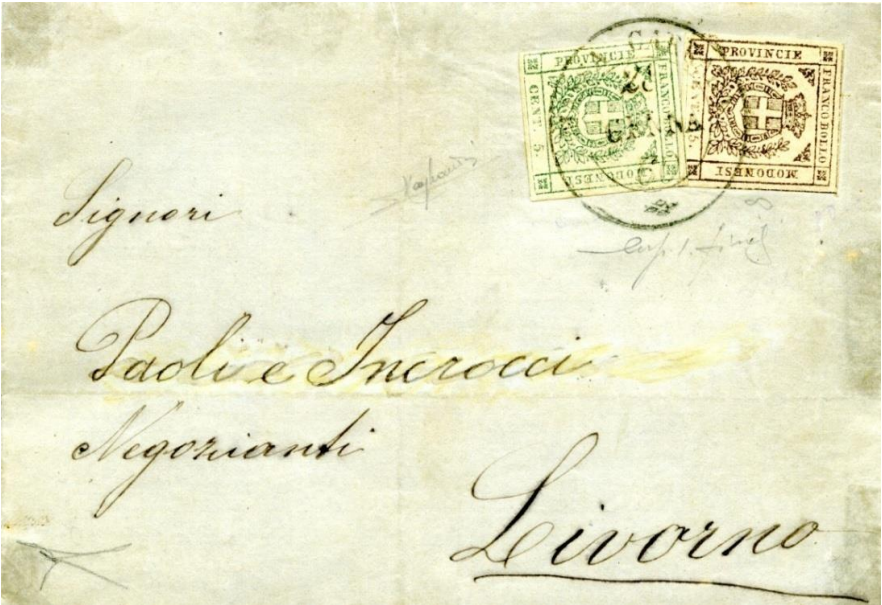 PROVINCIE
FRANCO BOLLO
MODONESI
CENT. 5.
PROVINCIE
FRANCO BOLLO
MODONESI
GENNA
Signori
Paoli e Increcci
Negozianti
Livorno